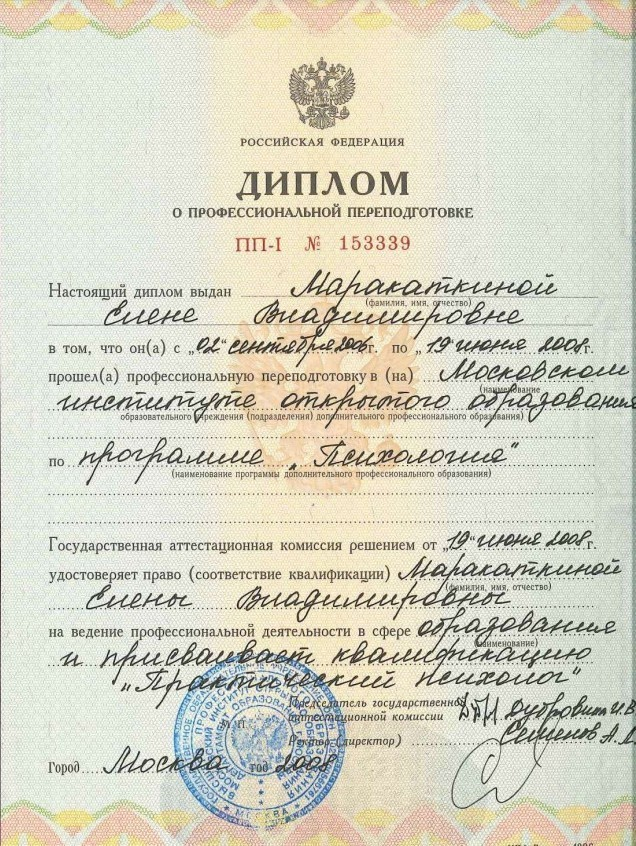 РОССИЙСКАЯ ФЕДЕРАЦИЯ
ДИПЛОМ
О ПРОФЕССИОНАЛЬНОЙ ПЕРЕПОДГОТОВКЕ
ПП-I № 153339
Настоящий диплом выдан Маракаткиной
(фамилия, имя, отчество)
Елене Владимировне
в том, что он(а) с „02" сентября 2006 г. по „19" июня 2008 г.
прошел(а) профессиональную переподготовку в (на) Московском
(наименование
институте открытого образования
образовательного учреждения (подразделения) дополнительного профессионального образования)
по программе „Психология"
(наименование программы дополнительного профессионального образования)
Государственная аттестационная комиссия решением от „19" июня 2008 г.
удостоверяет право (соответствие квалификации) Маракаткиной
(фамилия, имя, отчество)
Елены Владимировны
на ведение профессиональной деятельности в сфере образования
(наименование)
и присваивает квалификацию
„Практический психолог"
Председатель государственной
аттестационной комиссии Дубровина И.В.
Ректор (директор) Семенов А.Л.
Город Москва год 2008
МОСКВА